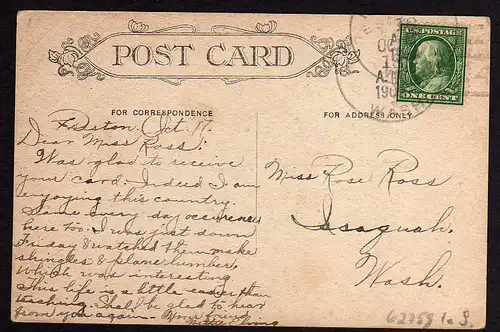 POST CARD
U.S. POSTAGE
ONE CENT
WASH
FOR CORRESPONDENCE
FOR ADDRESS ONLY
Preston, Oct. 17.
Dear Miss Ross:
Was glad to receive
your card. Indeed I am
enjoying this country.
Same every day occurences
here too. I was just down
Friday & watched them make
shingles & plane lumber.
Which was interesting
This life is a little easier than
teaching. Shall be glad to hear
from you again. Your friend
Miss Rose Ross
Issaquah,
Wash.
62759